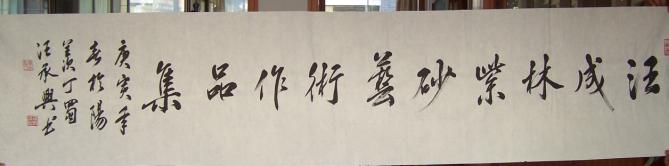 汪成林紫砂藝術作品集
庚寅年
春於陽
羨丁蜀
汪承興書